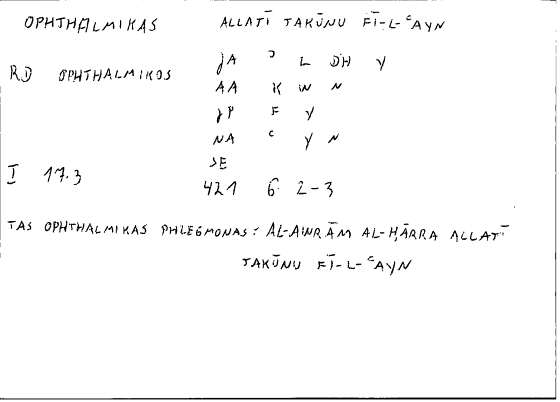 OPHTHALMIKAS ALLATĪ TAKŪNU FĪ-L-ᶜAYN
JA ᵓ L DH Y
RD OPHTHALMIKOS
AA K W N
JP F Y
NA ᶜ Y N
SE
I 17.3
421 6 2-3
TAS OPHTHALMIKAS PHLEGMONAS: AL-AWRĀM AL-ḤĀRRA ALLATĪ
TAKŪNU FĪ-L-ᶜAYN